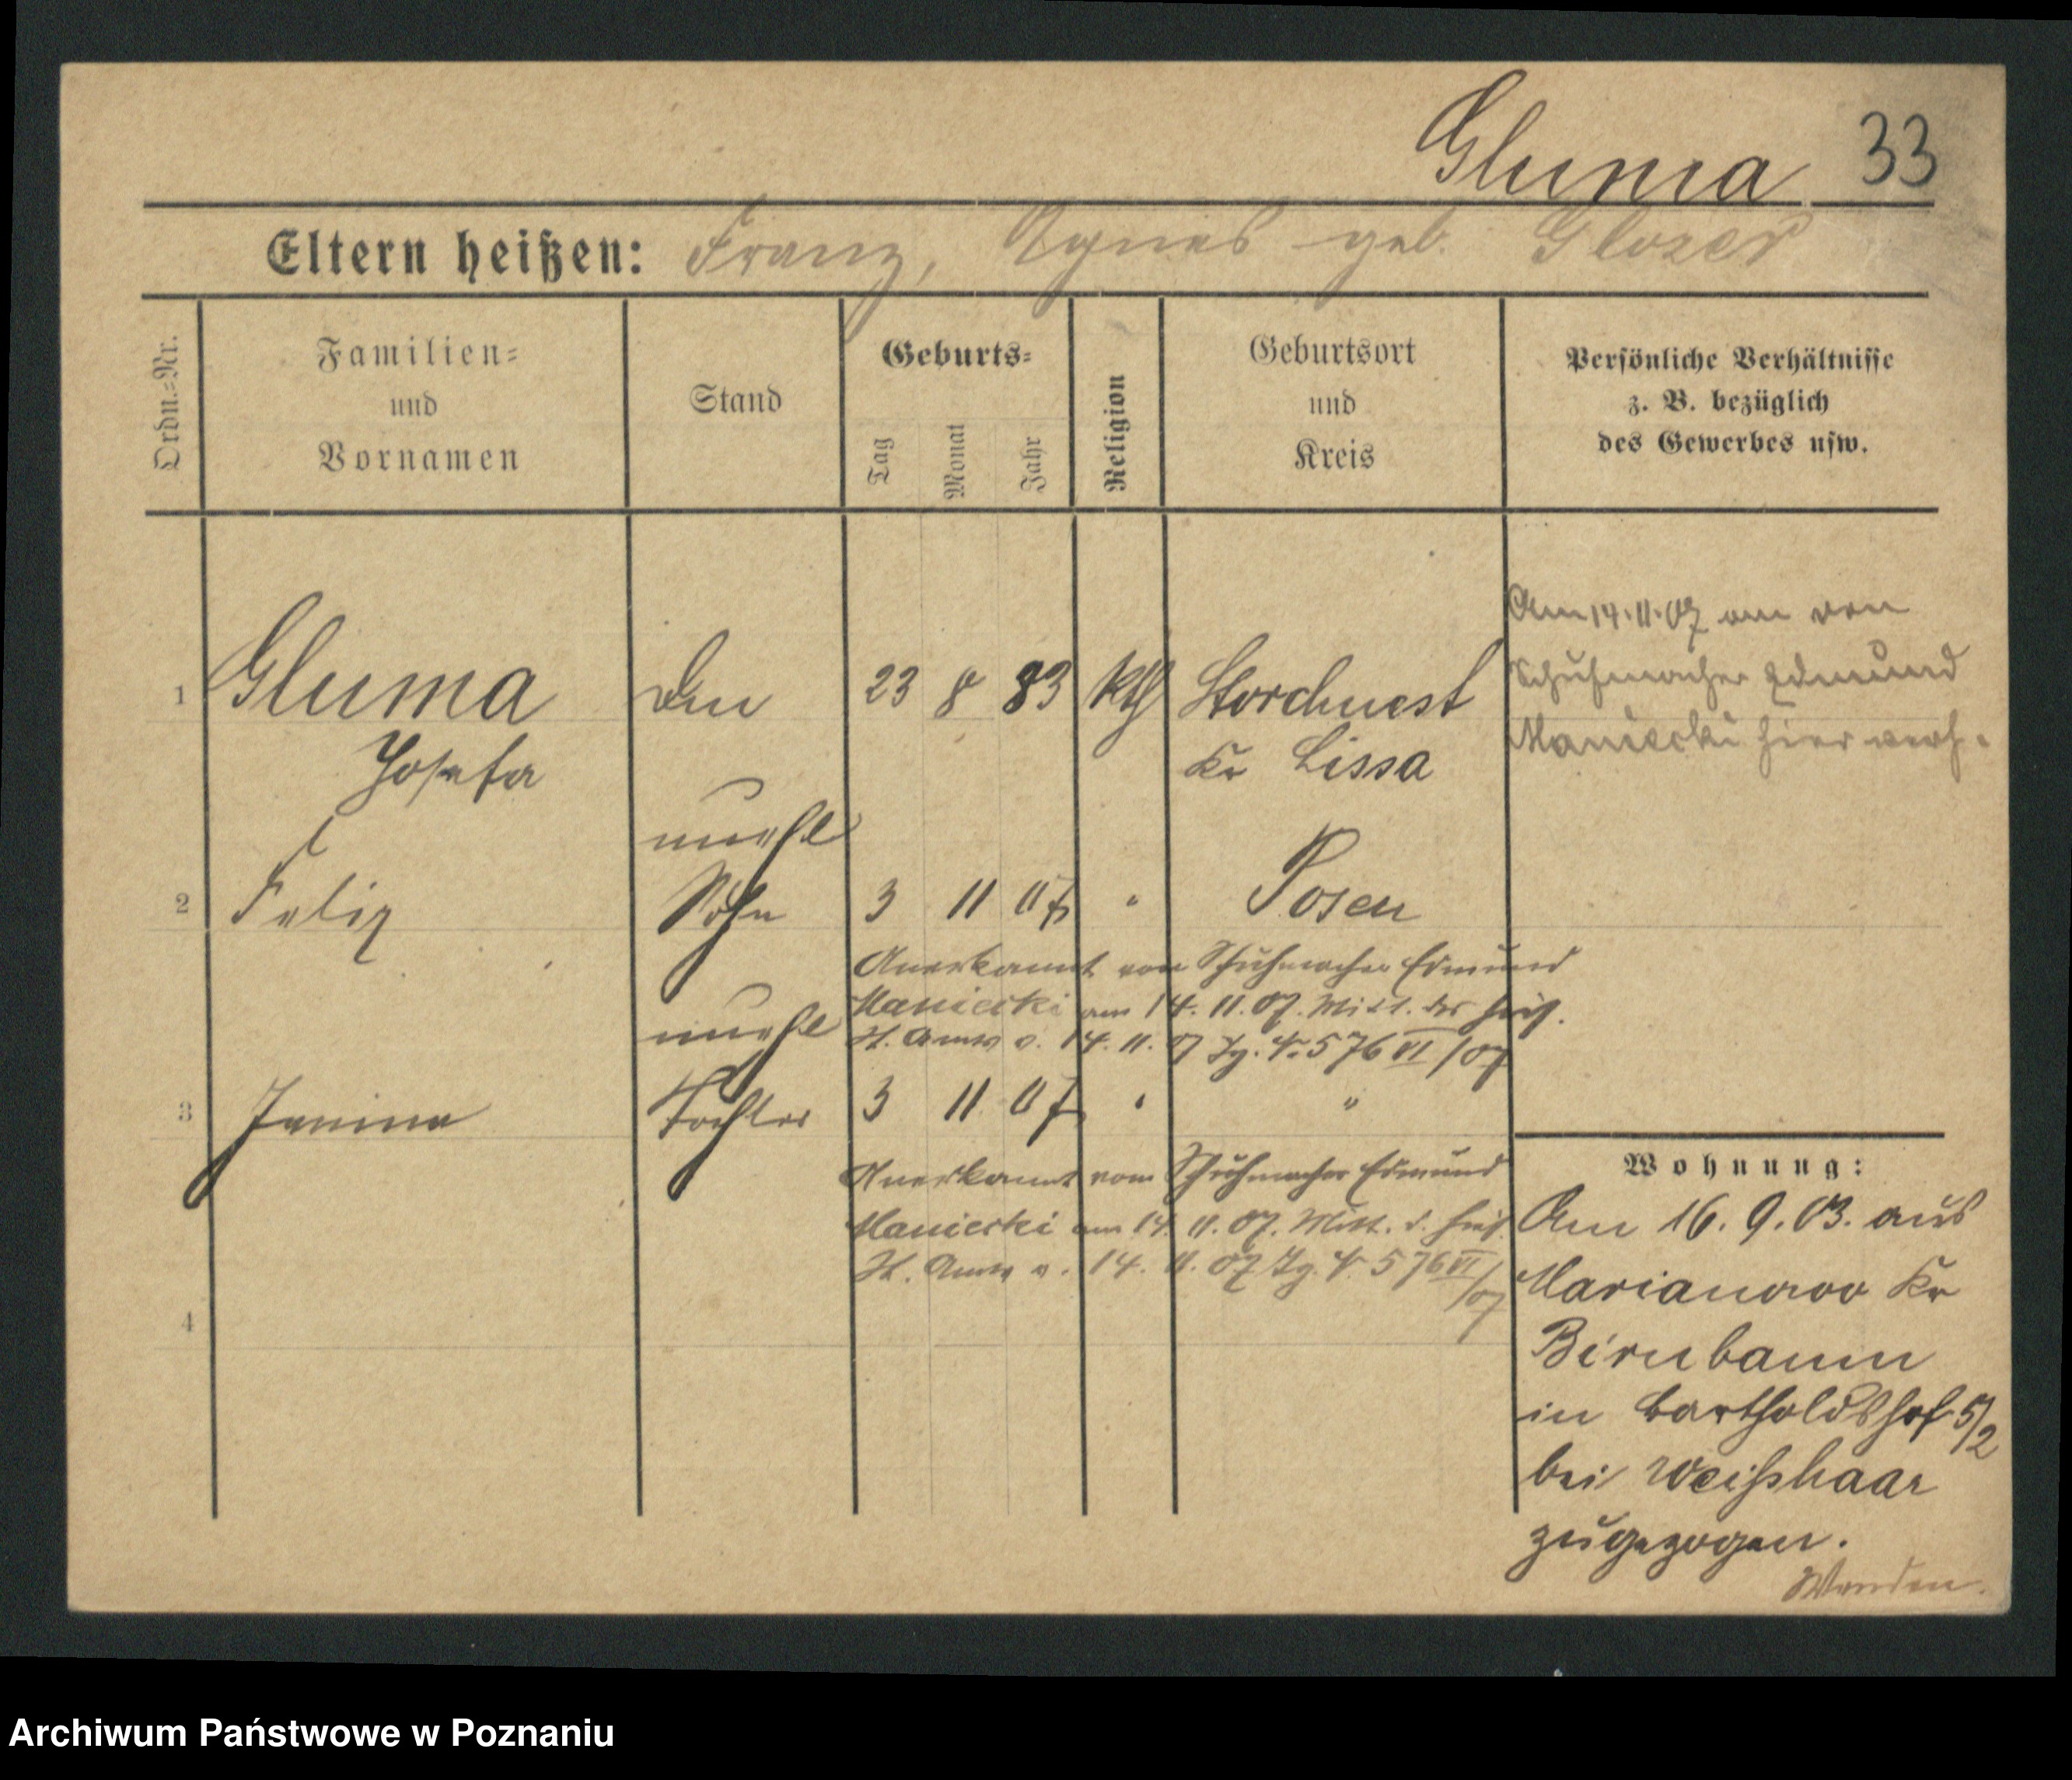 Gluma 33
Eltern heißen: Franz, Agnes geb. Glozer
Ordn.=Nr.
Familien=
und
Vornamen
Stand
Geburts=
Tag
Monat
Jahr
Religion
Geburtsort
und
Kreis
Persönliche Verhältnisse
z. B. bezüglich
des Gewerbes usw.
1 Gluma 23 8 83 kth Storchnest
Josefa Kr Lissa
Am 14.11.07 von
Schuhmacher Edmund
Maniecki hier verh.
unehl
2 Felix Sohn 3 11 07 " Posen
Anerkannt von Schuhmacher Edmund
Maniecki am 14.11.07. Mitt. des hies.
St. Amts v. 14.11.07 Tg. 576 VI/07
unehl
3 Janina Tochter 3 11 07 " "
Anerkannt vom Schuhmacher Edmund
Maniecki am 14.11.07. Mitt. d. hies.
St. Amts v. 14.11.07 Tg. 576 VI
/07
4
Wohnung:
Am 16.9.03. aus
Marianowo Kr
Birnbaum
in Bartholdshof 5/2
bei Weißhaar
zugezogen.
Archiwum Państwowe w Poznaniu